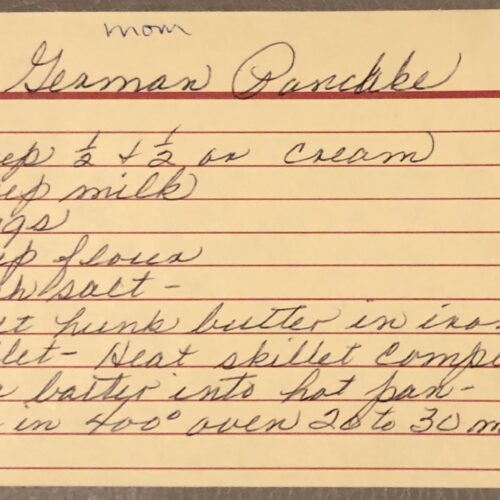 mom
German Pancake
up ½ + ½ or cream
up milk
gs
up flour
h salt -
t hunk butter in iro
let - Heat skillet comp
batter into hot pan -
in 400° oven 20 to 30 m